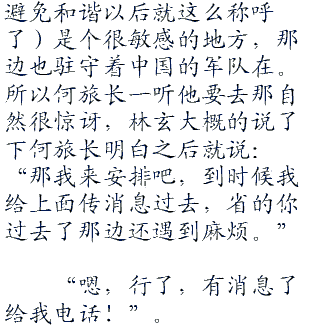 避免和谐以后就这么称呼
了）是个很敏感的地方，那
边也驻守着中国的军队在。
所以何旅长一听他要去那自
然很惊讶，林玄大概的说了
下何旅长明白之后就说：
“那我来安排吧，到时候我
给上面传消息过去，省的你
过去了那边还遇到麻烦。”
“嗯，行了，有消息了
给我电话！”。